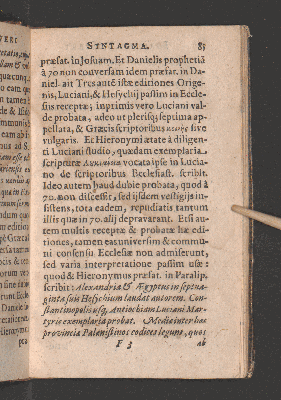 SYNTAGMA. 85
præfat. in Josuam. Et Danielis prophetiã
à 70 non conversam idem præfat. in Da-
niel. ait Tres autẽ istæ editiones Orige-
nis, Luciani, & Hesychij passim in Eccle-
sijs receptæ; inprimis vero Luciani val-
de probata, adeo ut plerisq; septima ap-
pellata, & Græcis scriptoribus κοινὴ sive
vulgaris. Et Hieronymi ætate à diligen-
ti Luciani studio, quædam exemplaria
scripturæ Λυκιάνεια vocata ipse in Lucia-
no de scriptoribus Ecclesiast. scribit.
Ideo autem haud dubie probata, quod à
70. non discessit, sed ijsdem vestigijs in-
sistens, tota eadem, repudiatis tantum
illis quæ in 70. alij depravarant. Etsi au-
tem multis receptæ & probatæ hæ edi-
tiones, tamen eas universim & commu-
ni consensu Ecclesiæ non admiserunt,
sed varia interpretatione passim usæ:
quod & Hieronymus præfat. in Paralip.
scribit: Alexandria & Ægyptus in septua-
ginta suis Hesychium laudat autorem. Con-
stantinopolis usq; Antiochiam Luciani Mar-
tyris exemplaria probat. Mediæ inter has
provinciæ Palæstinos codices legunt, quos
F 3 ab